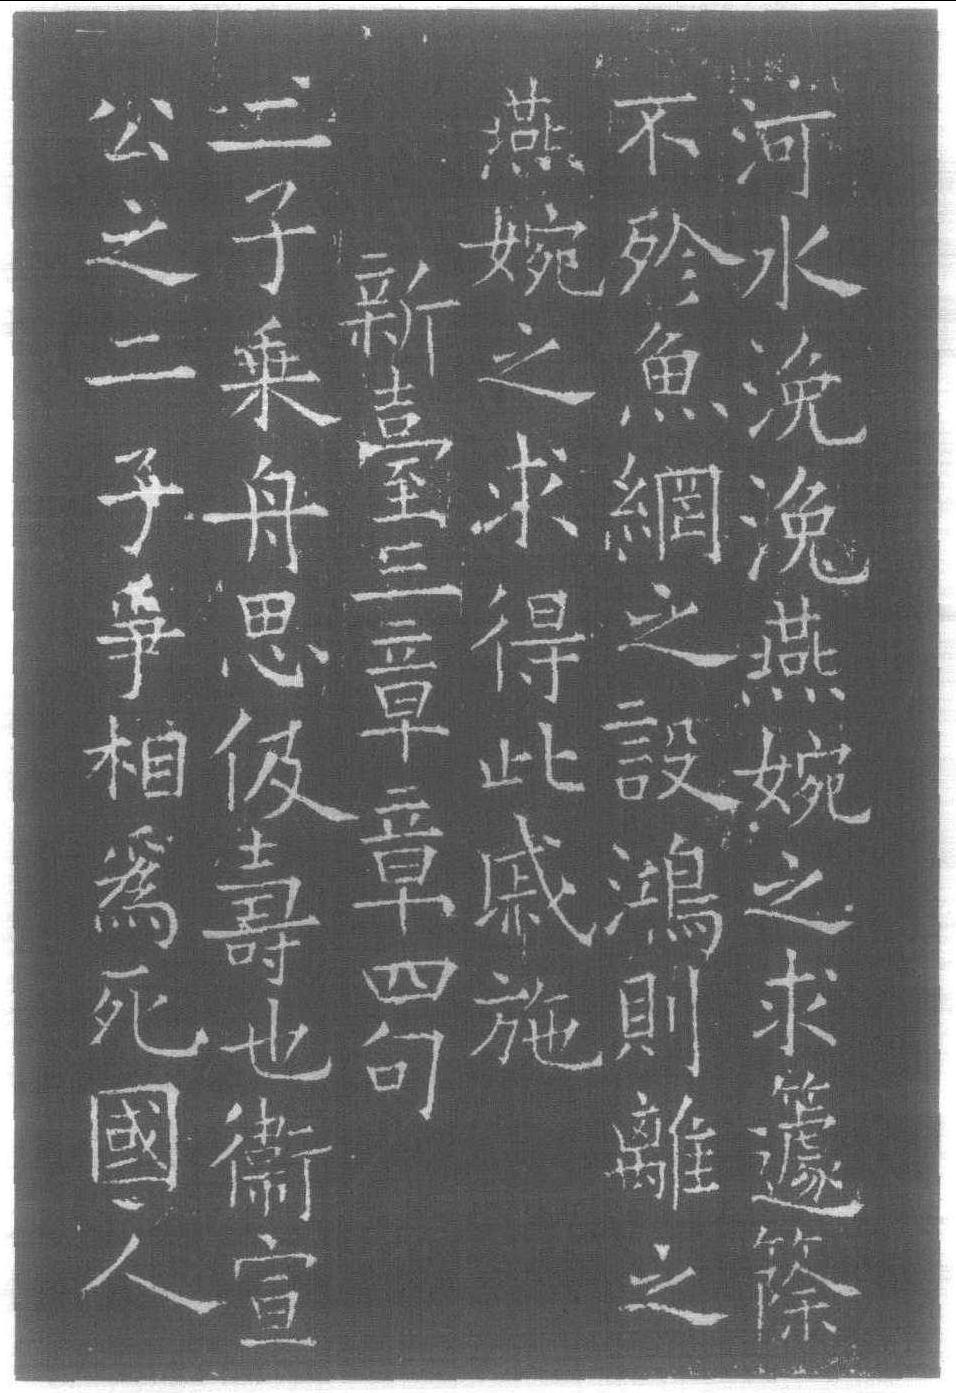 河水浼浼燕婉之求籧篨
不殄魚網之設鴻則離之
燕婉之求得此戚施
新臺三章章四句
二子乗舟思伋壽也衞宣
公之二子爭相爲死國人